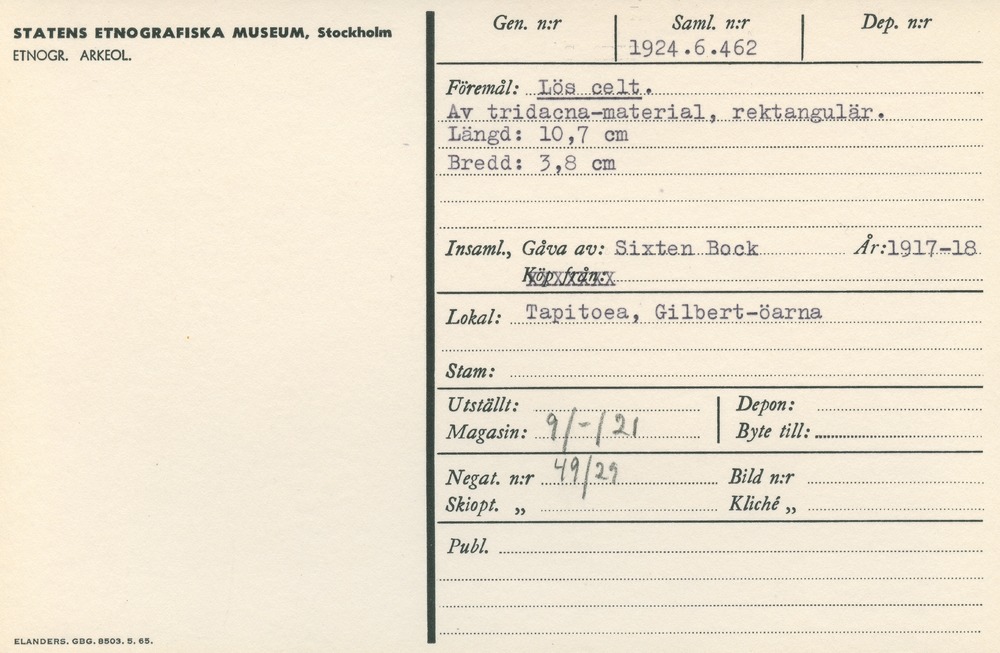 STATENS ETNOGRAFISKA MUSEUM, Stockholm
ETNOGR. ARKEOL.
Gen. n:r
Saml. n:r
1924.6.462
Dep. n:r
Föremål: Lös celt.
Av tridacna-material, rektangulär.
Längd: 10,7 cm
Bredd: 3,8 cm
Insaml., Gåva av: Sixten Bock År:1917-18
Köp från:
Lokal: Tapitoea, Gilbert-öarna
Stam:
Utställt:
Depon:
Magasin: 9/-/21
Byte till:
Negat. n:r 49/29
Bild n:r
Skiopt. „
Kliché „
Publ.
ELANDERS. GBG. 8503. 5. 65.